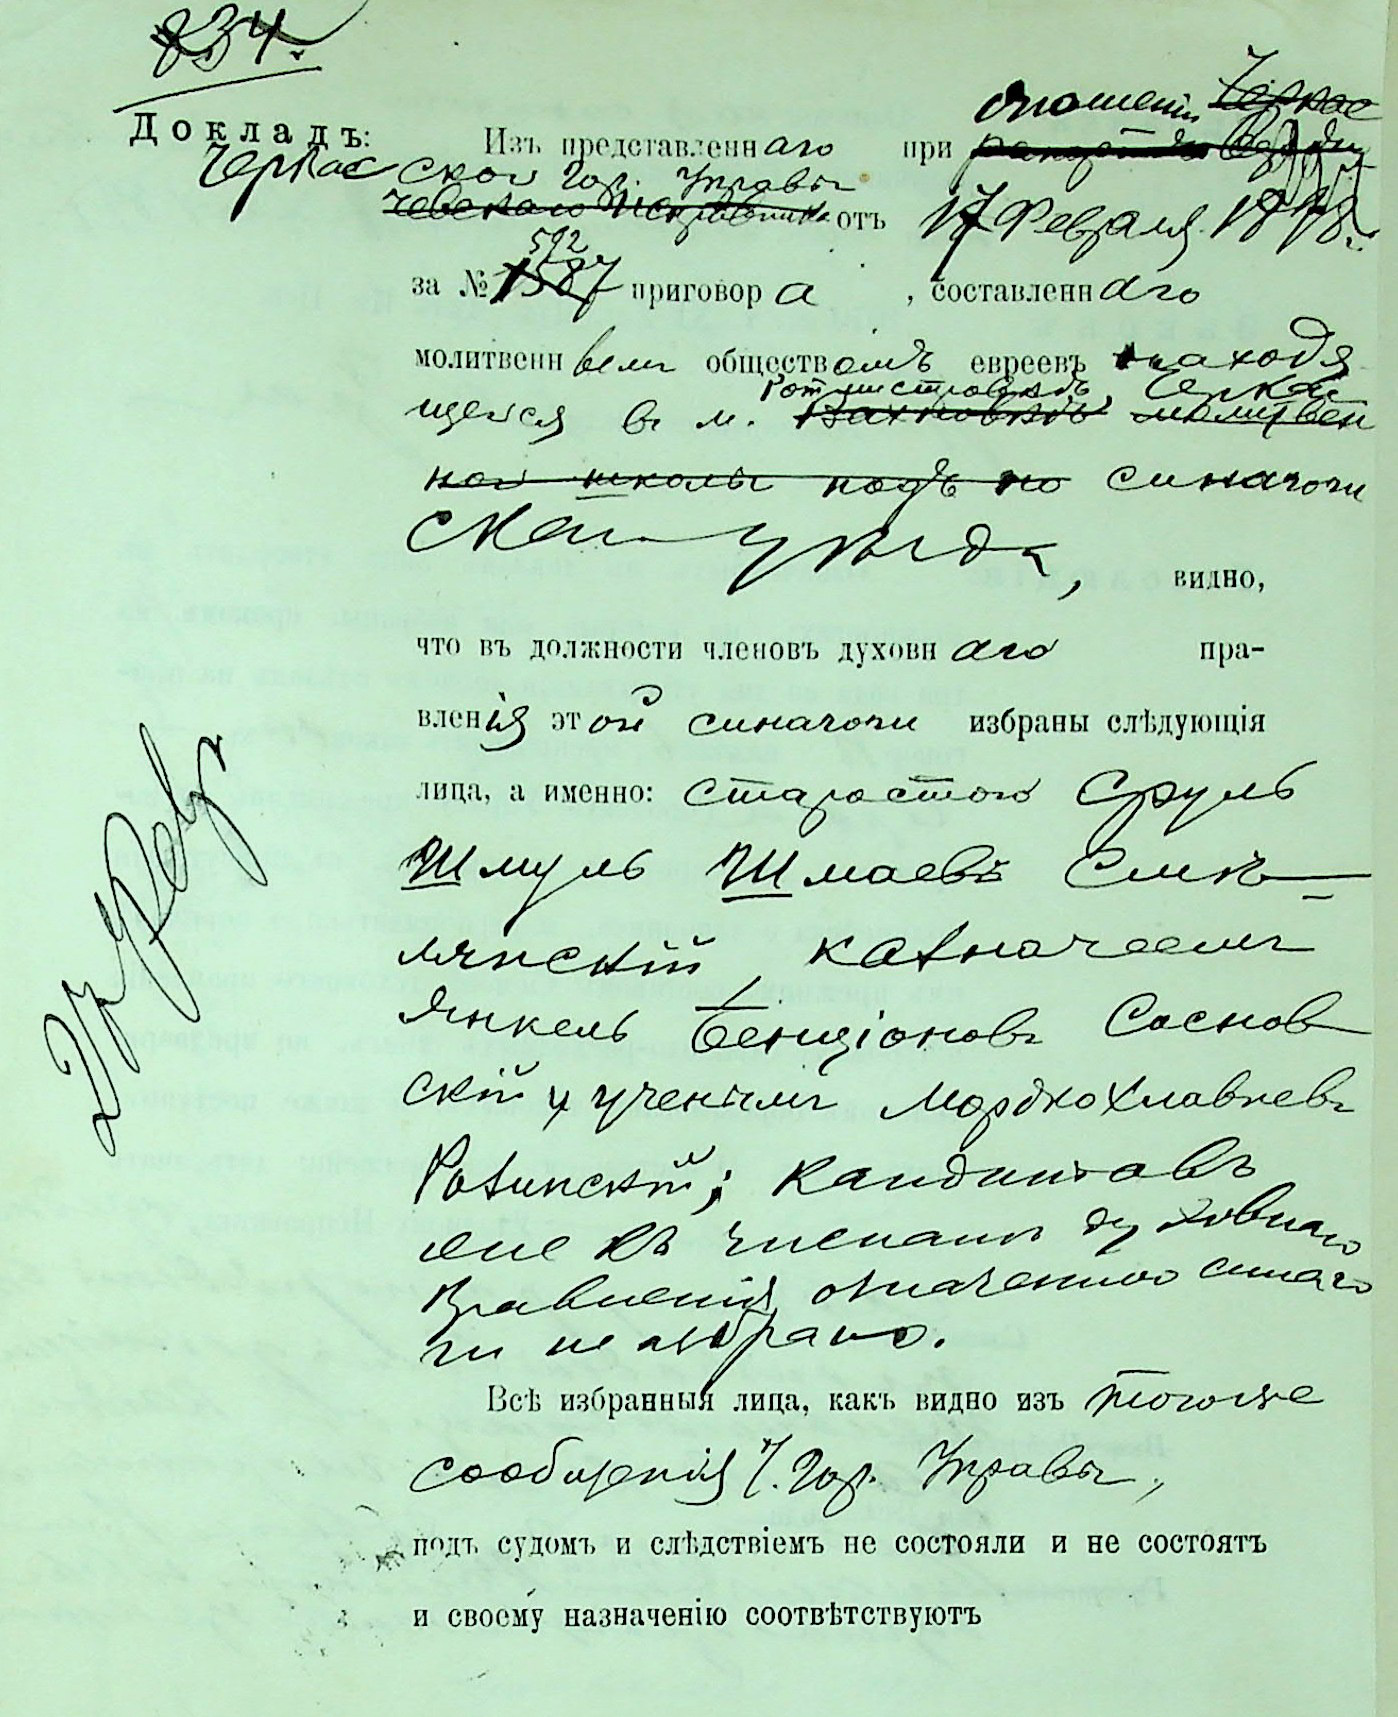 834.
Докладъ:
отношеніи Черкас
Изъ представленнаго при рапортѣ
Черкасской Гор. Управы
чевскаго Исправника отъ 17 Февраля 1898 г.
592
за № 1587 приговора, составленнаго
молитвеннымъ обществомъ евреевъ находя
Ротмистровкѣ, Черкас
щейся въ м. Вахновкѣ молитвен
ной школы подъ но синагоги
уѣзда, видно,
что въ должности членовъ духовнаго пра-
вленія этой синагоги избраны слѣдующія
лица, а именно: старостою Сруль
Шмуль Шмаевъ Смѣ
лянскій, казначеемъ
Янкель Бенціоновъ Соснов
скій и ученымъ Мордко Хлавневъ
Ротинскій; кандидатовъ
еще къ членамъ духовнаго
Правленія означенной синаго
ги не избрано.
Всѣ избранныя лица, какъ видно изъ того же
сообщенія Ч. Гор. Управы,
подъ судомъ и слѣдствіемъ не состояли и не состоятъ
и своему назначенію соотвѣтствуютъ